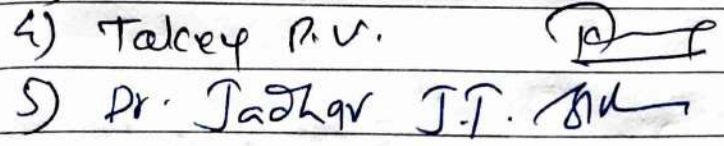 4) Talcey P.V.
5) Dr. Jadhav J.T.